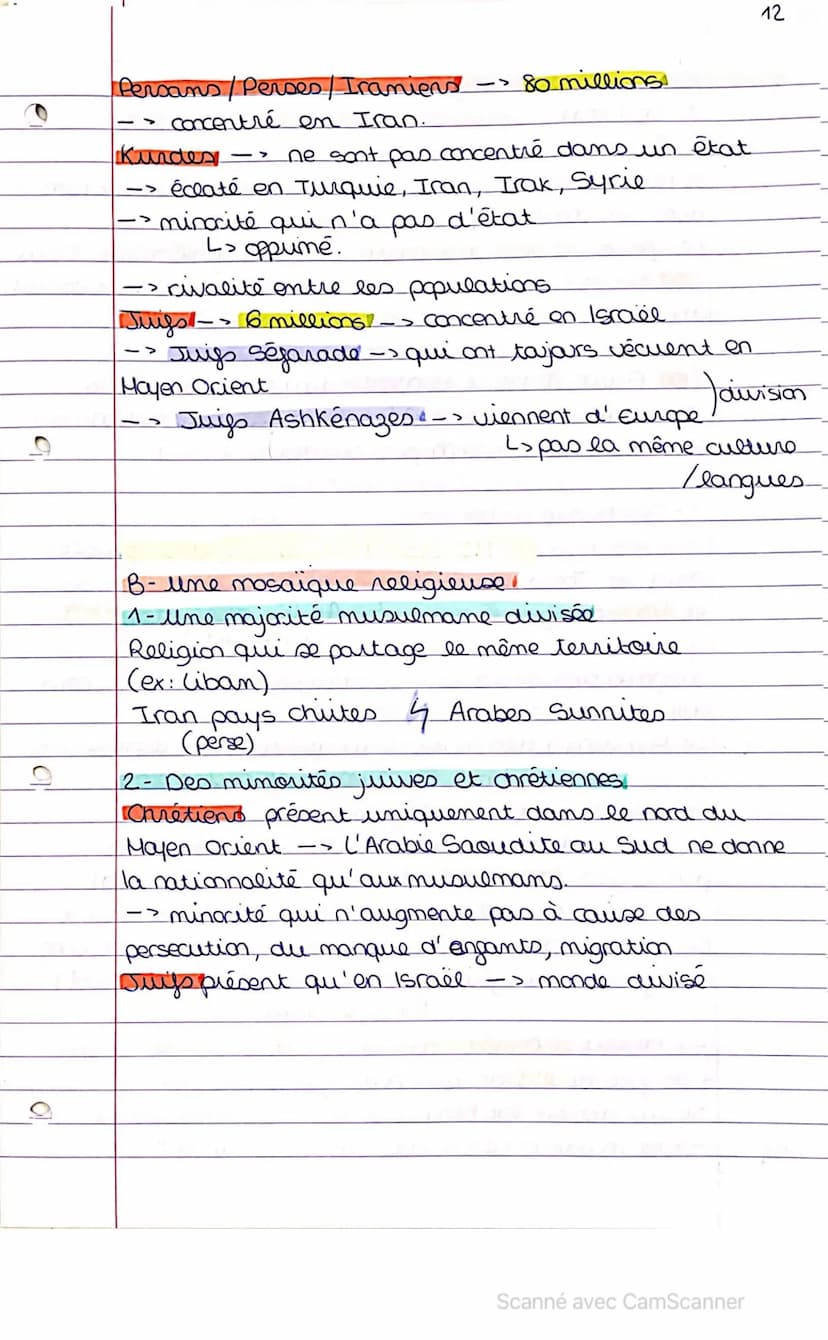 12
Persans/Perses/Iraniens -> 80 millions
-> concentré en Iran.
Kurdes -> ne sont pas concentré dans un état
-> éclaté en Turquie, Iran, Irak, Syrie
-> minorité qui n'a pas d'état
↳ opprimé.
-> rivalité entre les populations
Juifs -> 6 millions -> concentré en Israël
-> Juifs Séfarade -> qui ont toujours vécuent en
Moyen Orient
) division
-> Juifs Ashkénazes -> viennent d'Europe
↳ pas la même culture
/langues
B- Une mosaïque religieuse
1- Une majorité musulmane divisée
Religion qui se partage le même territoire
(ex: Liban)
Iran pays chiites ↯ Arabes Sunnites
(perse)
2- Des minorités juives et chrétiennes
Chrétiens présent uniquement dans le nord du
Moyen Orient -> L'Arabie Saoudite au Sud ne donne
la nationnalité qu'aux musulmans.
-> minorité qui n'augmente pas à cause des
persecution, du manque d'enfants, migration
Juifs présent qu'en Israël -> monde divisé
Scanné avec CamScanner